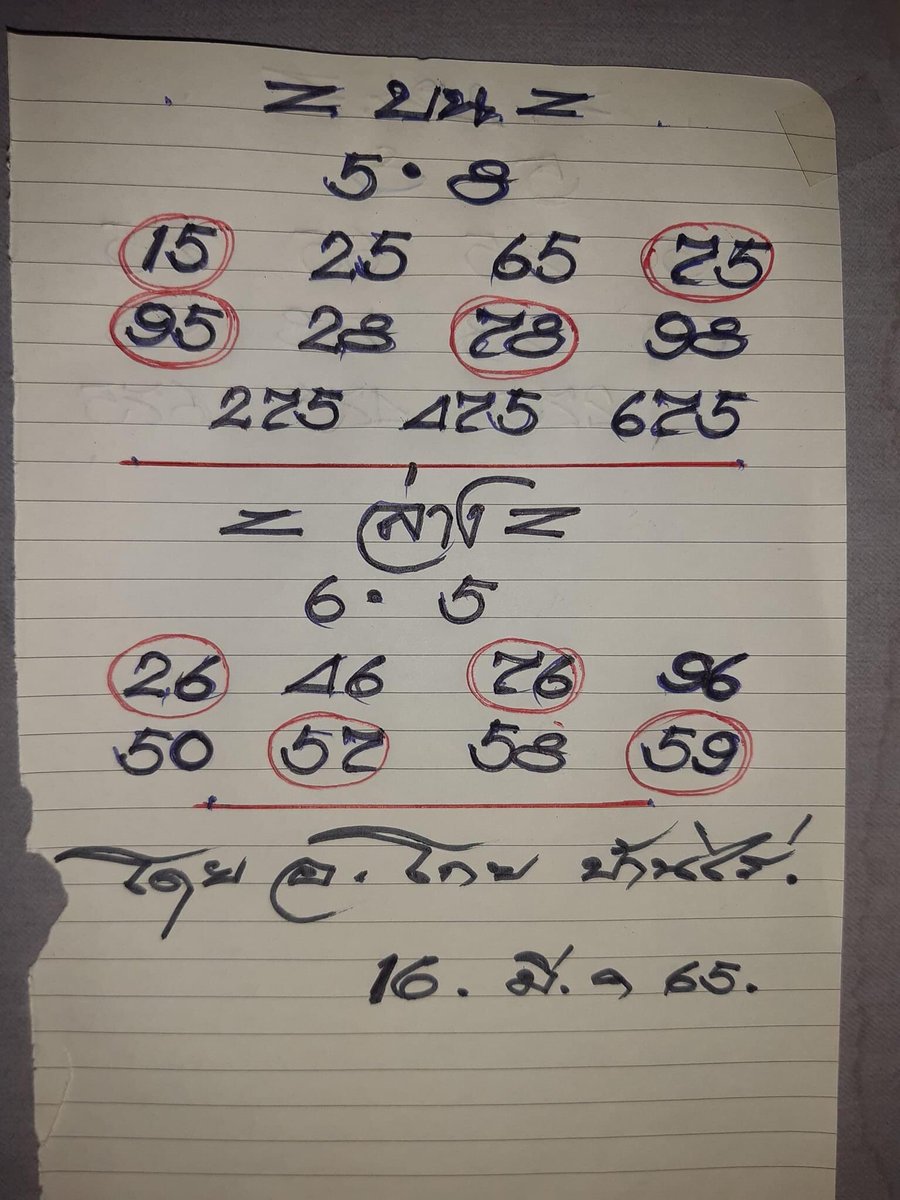 = บน =
5 . 8
15 25 65 75
95 28 78 98
275 475 675
= ล่าง =
6 . 5
26 46 76 96
50 57 58 59
โดย อ. โกย บ้านไร่.
16. มี. ค 65.